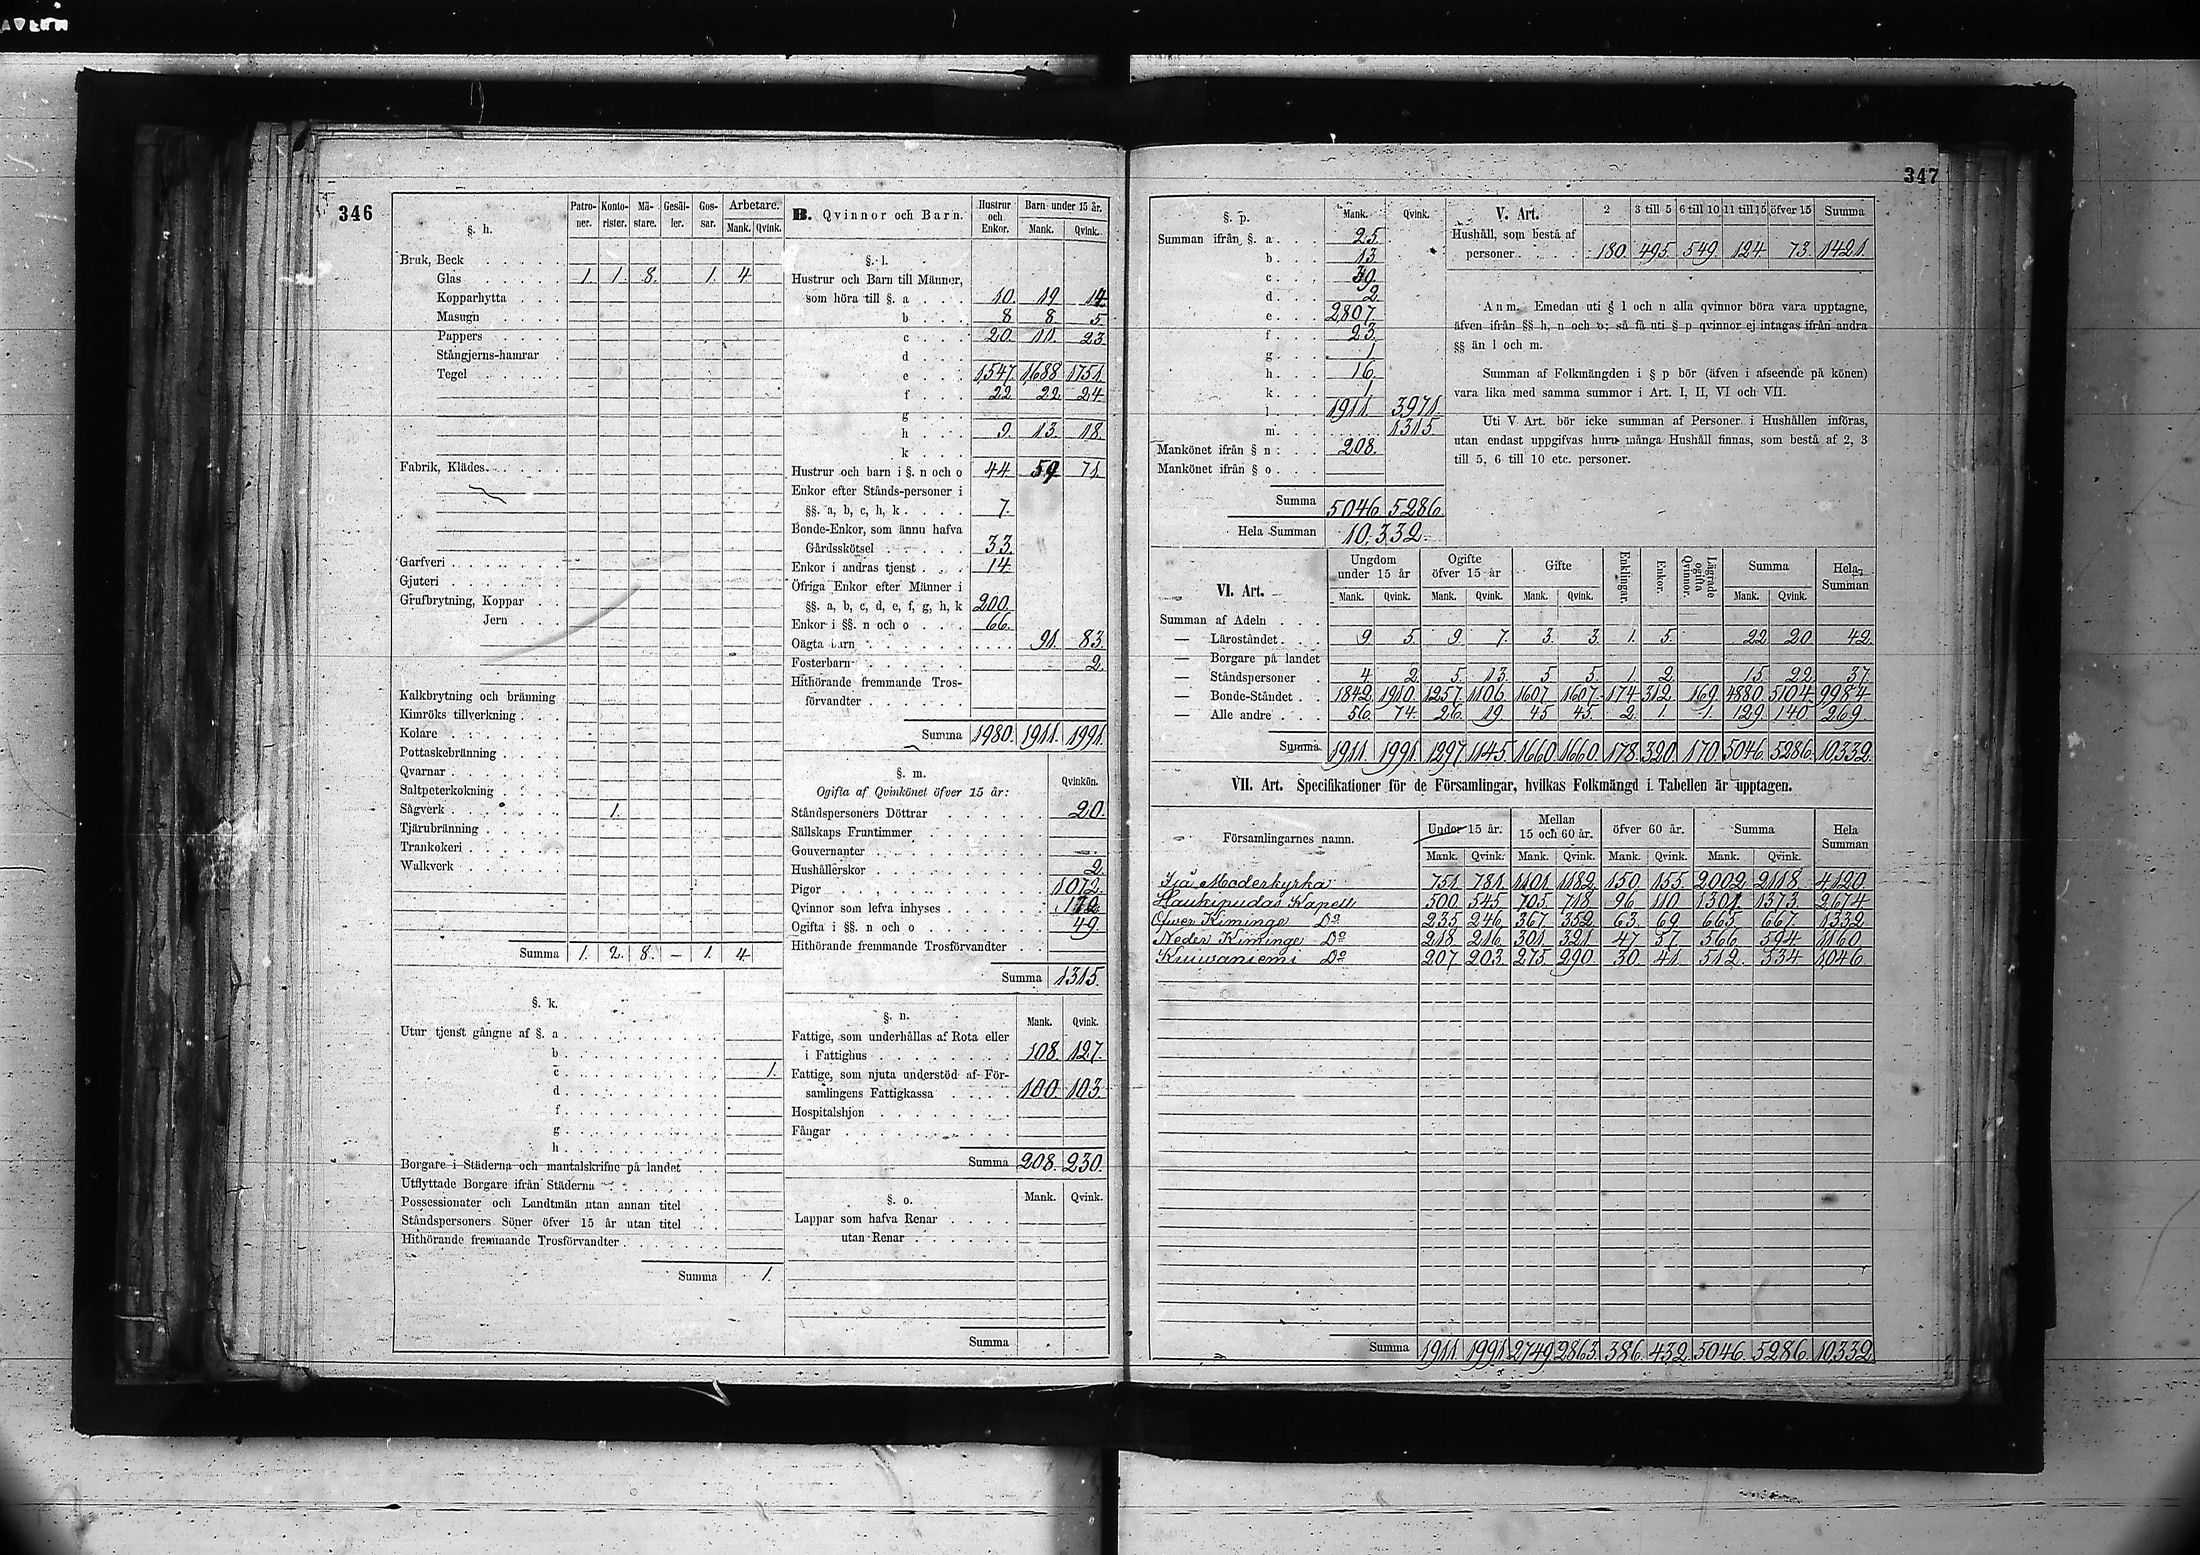 346
§. h.
Patro- Konto- Mä- Gesäl- Gos- Arbetare.
ner. rister. stare. ler. sar. Mank. Qvink.
Bruk, Beck
Glas 1. 1. 8. 1. 4.
Kopparhytta
Masugn
Pappers
Stångjerns-hamrar
Tegel
Fabrik, Klädes
Garfveri
Gjuteri
Grufbrytning, Koppar
Jern
Kalkbrytning och bränning
Kimröks tillverkning
Kolare
Pottaskebränning
Qvarnar
Saltpeterkokning
Sågverk 1.
Tjärubränning
Trankokeri
Walkverk
Summa 1. 2. 8. – 1. 4.
§. k.
Utur tjenst gångne af §. a
b
c 1.
d
f
g
h
Borgare i Städerna och mantalskrifne på landet
Utflyttade Borgare ifrån Städerna
Possessionater och Landtmän utan annan titel
Ståndspersoners Söner öfver 15 år utan titel
Hithörande fremmande Trosförvandter
Summa 1.
B. Qvinnor och Barn.
Hustrur och Enkor. Barn under 15 år.
Mank. Qvink.
§. l.
Hustrur och Barn till Männer,
som höra till §. a 10. 19 14
b 8 8. 5
c 20. 11. 23
d
e 1,547. 1,688 1751.
f 22 22 24
g
h 9. 13. 18.
k
Hustrur och barn i §. n och o 44 59 71
Enkor efter Stånds-personer i
§§. a, b, c, h, k 7.
Bonde-Enkor, som ännu hafva
Gårdsskötsel 33.
Enkor i andras tjenst 14
Öfriga Enkor efter Männer i
§§. a, b, c, d, e, f, g, h, k 200.
Enkor i §§. n och o 66.
Oägta barn 91. 83.
Fosterbarn 2.
Hithörande fremmande Tros-
förvandter
Summa 1980. 1911. 1991.
§. m. Qvinkön.
Ogifta af Qvinkönet öfver 15 år:
Ståndspersoners Döttrar 20.
Sällskaps Fruntimmer
Gouvernanter –
Hushållerskor 2.
Pigor 1072.
Qvinnor som lefva inhyses 172.
Ogifta i §§. n och o 49.
Hithörande fremmande Trosförvandter
Summa 1315.
§. n. Mank. Qvink.
Fattige, som underhållas af Rota eller
i Fattighus 108. 127.
Fattige, som njuta understöd af För-
samlingens Fattigkassa 100. 103.
Hospitalshjon
Fångar
Summa 208. 230.
§. o. Mank. Qvink.
Lappar som hafva Renar
utan Renar
Summa
347
§. p. Mank. Qvink.
Summan ifrån §. a 25.
b 13.
c 39.
d 2.
e 2807.
f 23.
g 1.
h 16.
k 1.
l 1911. 3971.
m. 1315.
Mankönet ifrån § n 208.
Mankönet ifrån § o
Summa 5046. 5286.
Hela Summan 10.332.
V. Art. 2 3 till 5 6 till 10 11 till 15 öfver 15 Summa
Hushåll, som bestå af
personer 180. 495. 549. 124. 73. 1421.
Anm. Emedan uti § l och n alla qvinnor böra vara upptagne,
äfven ifrån §§ h, n och o; så få uti § p qvinnor ej intagas ifrån andra
§§ än l och m.
Summan af Folkmängden i § p bör (äfven i afseende på könen)
vara lika med samma summor i Art. I, II, VI och VII.
Uti V Art. bör icke summan af Personer i Hushållen införas,
utan endast uppgifvas huru många Hushåll finnas, som bestå af 2, 3
till 5, 6 till 10 etc. personer.
VI. Art. Ungdom under 15 år Ogifte öfver 15 år Gifte Enklingar. Enkor. Lägrade ogifta Qvinnor. Summa Hela Summan
Mank. Qvink. Mank. Qvink. Mank. Qvink. Mank. Qvink.
Summan af Adeln
— Läroståndet 9. 5. 9. 7. 3. 3. 1. 5. 22. 20 42.
— Borgare på landet
— Ståndspersoner 4 2. 5. 13. 5 5. 1 2. 15. 22 37.
— Bonde-Ståndet 1842. 1910. 1257. 1106. 1607. 1607. 174. 312. 169. 4880. 5104. 9984.
— Alle andre 56. 74. 26. 19. 45 45. 2. 1. 1. 129. 140 269.
Summa 1911. 1991. 1297. 1145. 1660. 1660. 178. 320. 170. 5046. 5286. 10332.
VII. Art. Specifikationer för de Församlingar, hvilkas Folkmängd i Tabellen är upptagen.
Församlingarnes namn. Under 15 år. Mellan 15 och 60 år. öfver 60 år. Summa Hela Summan
Mank. Qvink. Mank. Qvink. Mank. Qvink. Mank. Qvink.
Ijå Moderkyrka 751. 781. 1101. 1182. 150. 155. 2002. 2118. 4120.
Haukipudas Kapell 500. 545. 705. 718. 96 110. 1301. 1373. 2674.
Öfver Kiminge Do 235. 246. 367. 352. 63. 69. 665. 667. 1332.
Neder Kiminge Do 218. 216. 301. 321. 47. 57. 566. 594. 1160.
Kuiwaniemi Do 207. 203. 275. 290. 30. 41. 512. 534. 1046.
Summa 1911. 1991. 2749. 2863. 386. 432. 5046. 5286. 10332.